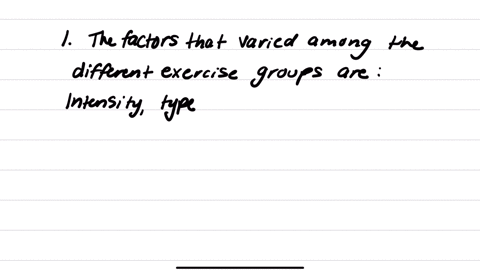 1. The factors that varied among the
different exercise groups are:
Intensity, type